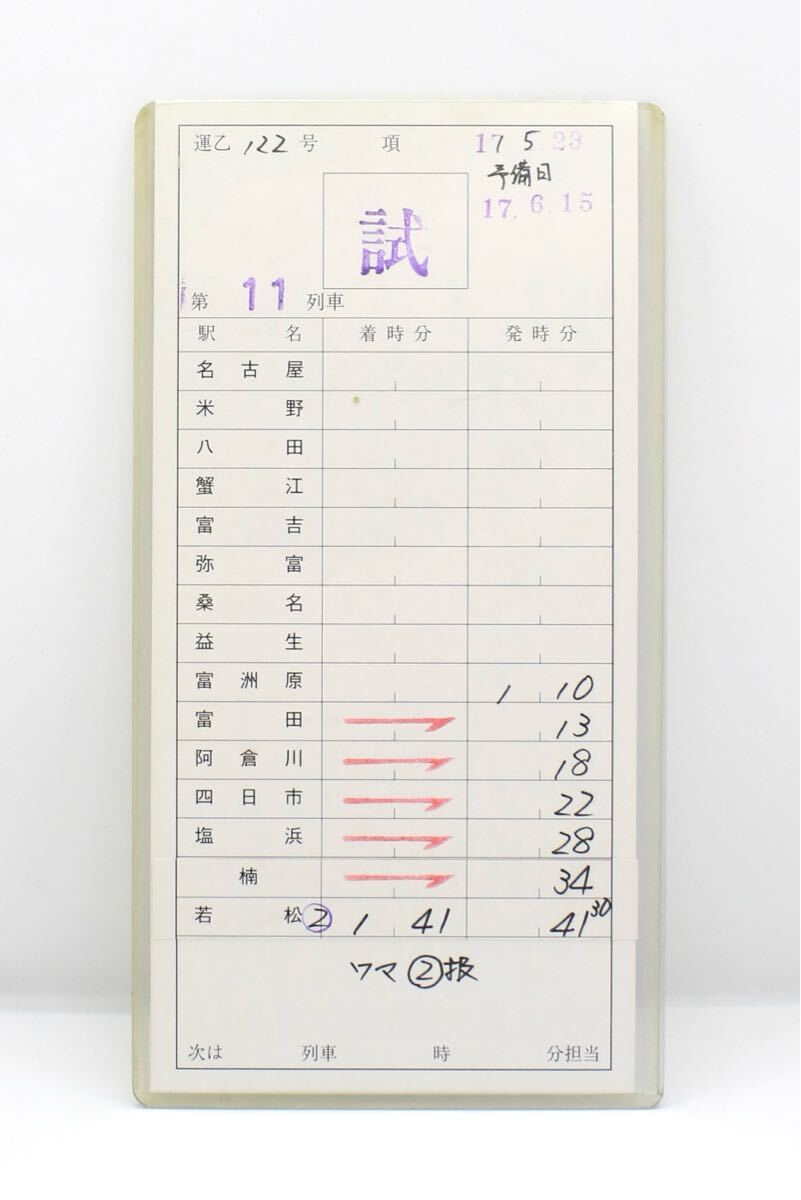 運乙 122 号 項 17 5 23
予備日
17. 6. 15
試
第 11 列車
駅名 着時分 発時分
名古屋
米野
八田
蟹江
富吉
弥富
桑名
益生
富洲原 1 10
富田 → 13
阿倉川 → 18
四日市 → 22
塩浜 → 28
楠 → 34
若松 ② 1 41 41 30
ワマ ②
次は 列車 時 分担当